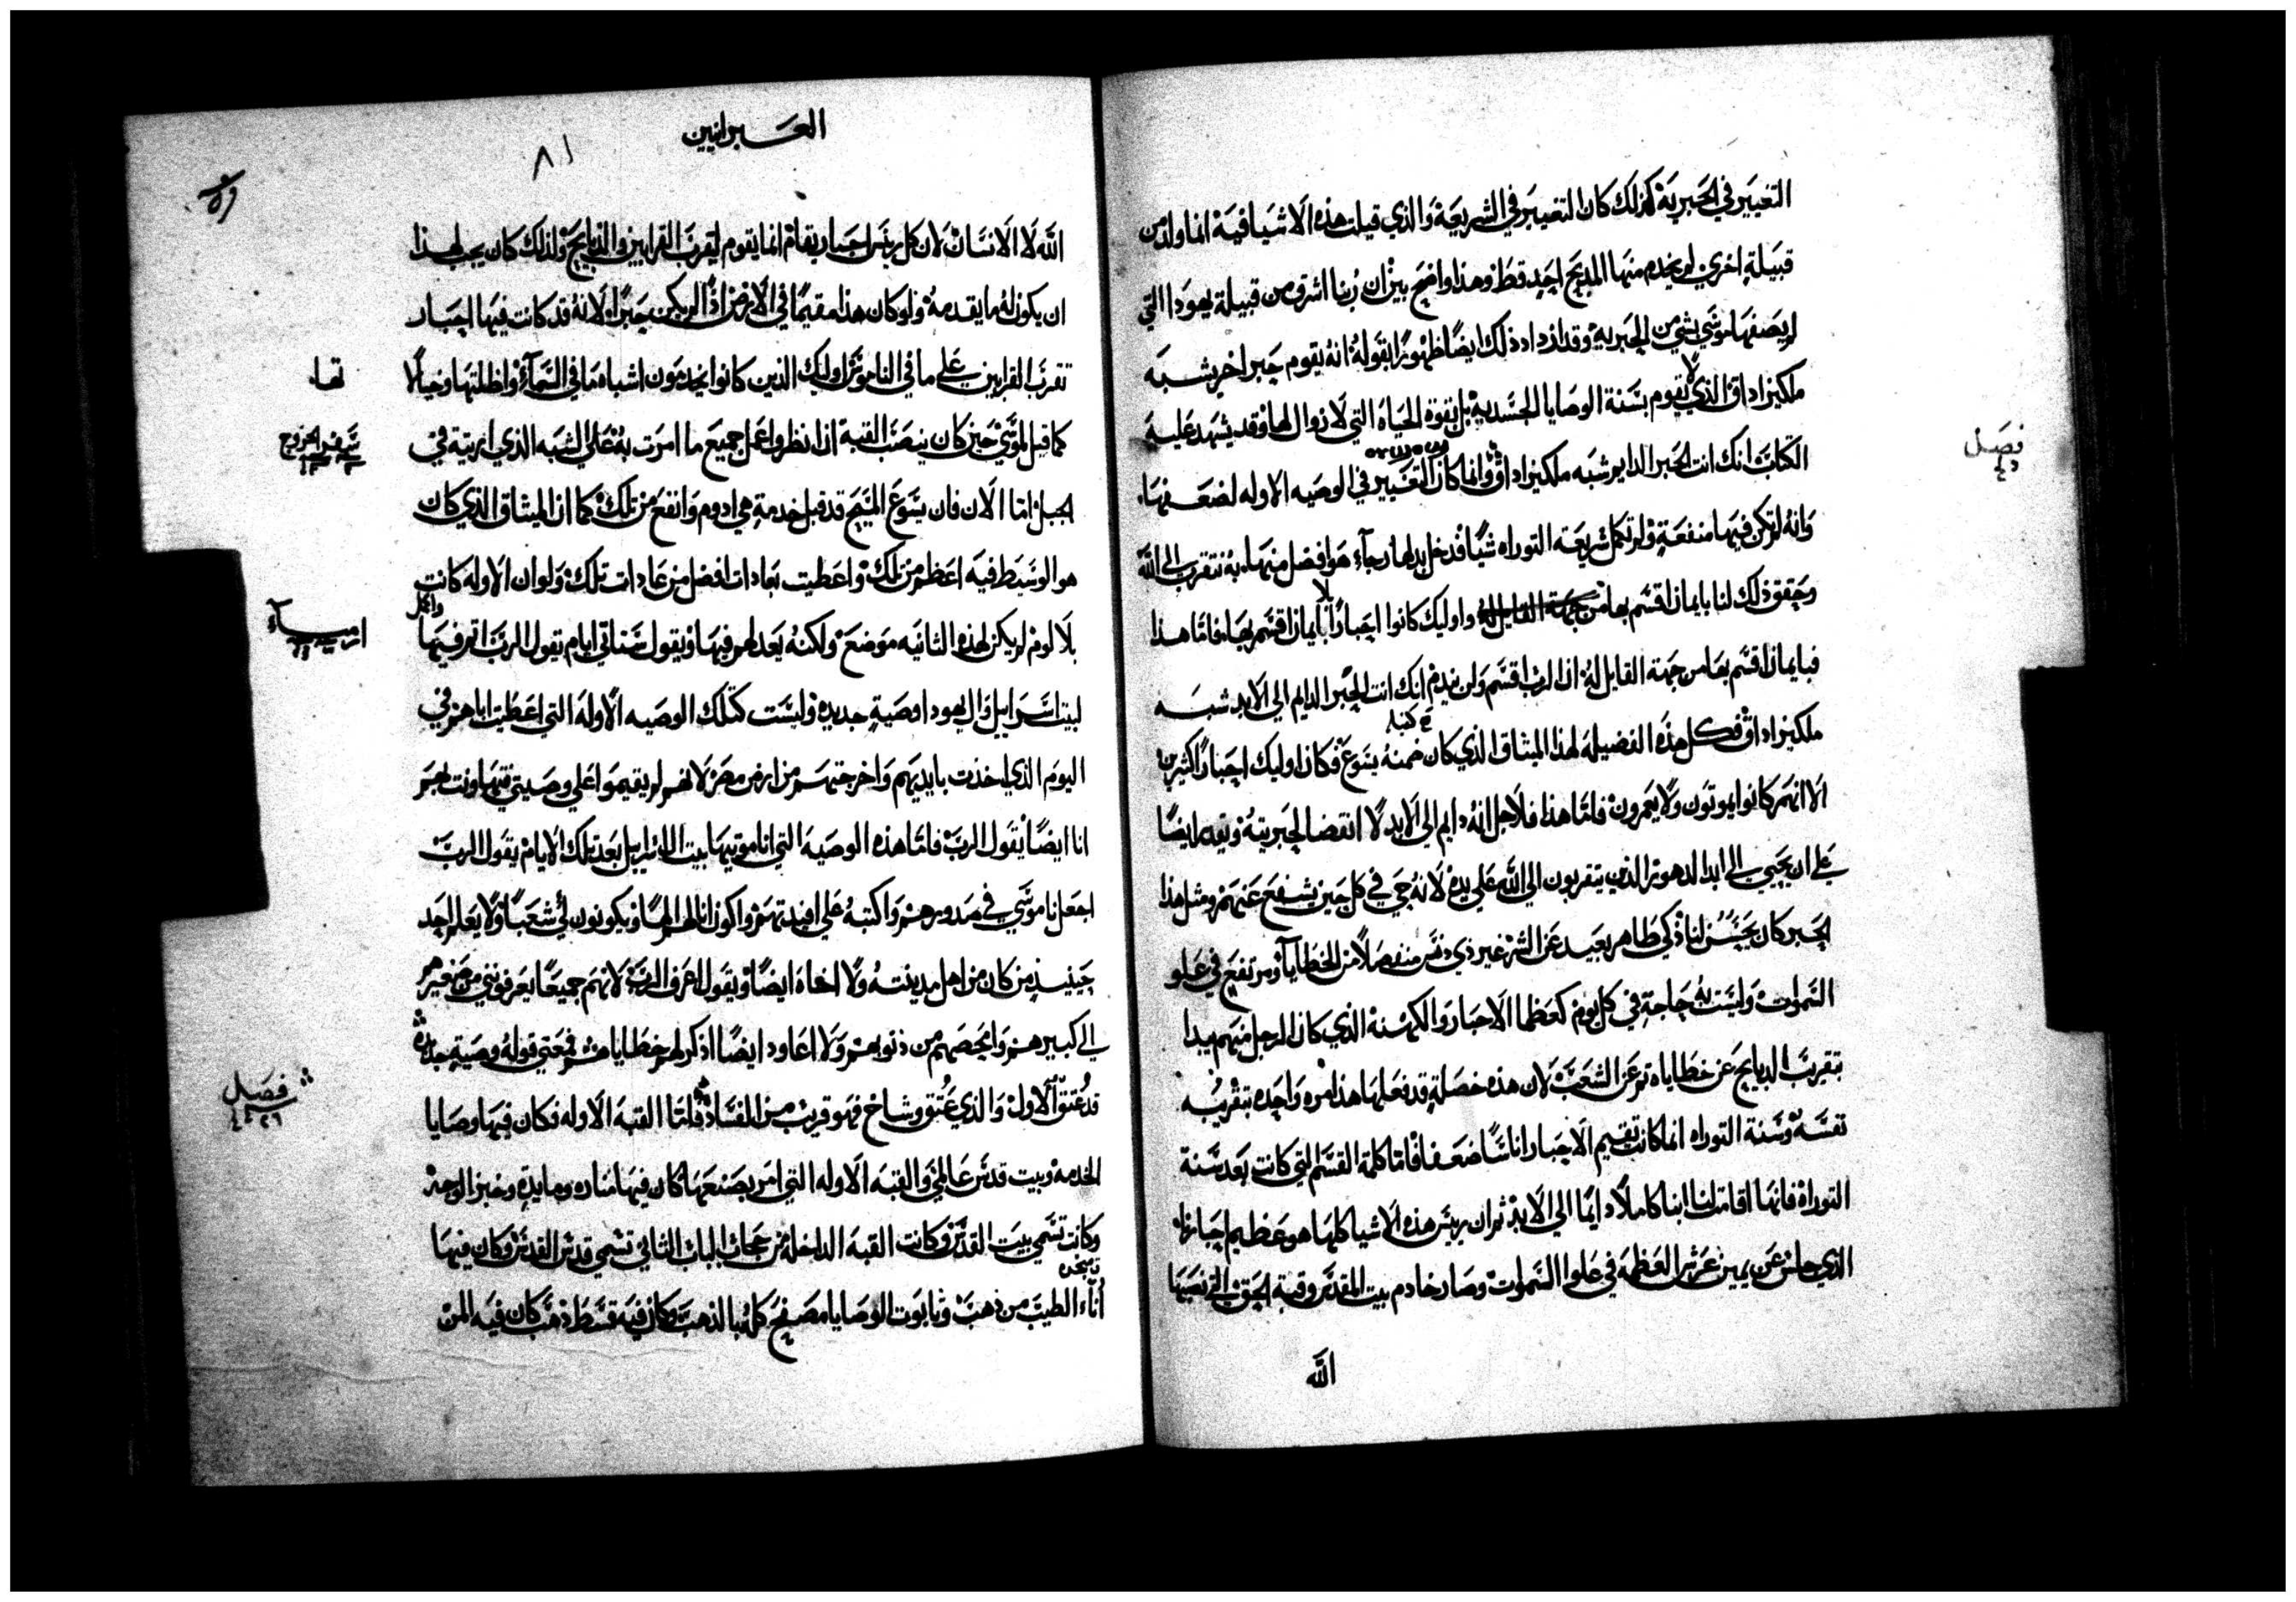 التغيير في الحبرية كذلك كان التغيير في الشريعة والذي قيلت هذه الاشيا فيه انما ولد من
قبيلة اخرى لم يخدم منها المذبح احد قط وهذا واضح بين ان ربنا اشرق من قبيلة يهودا التي
لم يصفها موسى بشي من الحبرية وقد ازداد ذلك ايضا ظهورا بقوله انه يقوم حبر اخر يشبه
ملكيزاداق الذي لا يقوم بسنة الوصايا الجسدية بل بقوة الحياة التي لا زوال لها وقد يشهد عليه
الكتاب انك انت الحبر الدايم شبه ملكيزاداق وانما كان التغيير في الوصيه الاوله لضعفها
وانه لم تكن فيها منفعة ولم تكمل شريعة التوراه شيا فدخل بدلها رجاء هو افضل منها به نتقرب الى الله
وحقق ذلك لنا بايمان اقسم بها واوليك كانوا احبارا لا بايمان اقسم بها فاما هذا
فبايمان اقسم بها من جهة القايل له ان الرب اقسم ولن يندم انك انت الحبر الدايم الى الابد شبه
ملكيزاداق فكل هذه الفضيلة لهذا الميثاق الذي كان ضمنه يسوع فكان اوليك احبارا كثيرين
الا انهم كانوا يموتون ولا يعمرون فاما هذا فلاجل انه دايم الى الابد لا انقضا لحبريته ويقدر ايضا
على ان يحيي الى ابد الدهور الذين يتقربون الى الله على يده لانه حي في كل حين يشفع عنهم ومثل هذا
الحبر كان يحسن لنا ذكي طاهر بعيد عن الشر غير ذي دنس منفصلا من الخطايا ومرتفع في علو
السموات وليست به حاجة في كل يوم كعظما الاحبار والكهنة الذي كان الرجل منهم يبدا
بتقريب الذبايح عن خطاياه ثم عن الشعب لان هذه خصلة قد فعلها هذا مره واحده بتقريبه
نفسه وسنة التوراه انما كانت تقيم الاحبار اناسا ضعفا فاما كلمة القسم التي كانت بعد سنة
التوراة فانها اقامت لنا ابنا كاملا دايما الى الابد ثم ان رييس هذه الاشيا كلها هو عظيم احبارنا
الذي جلس عن يمين عرش العظمة في علوا السموات وصار خادم بيت المقدس وقبة الحق التي نصبها
الله
فصل
العبرانيين
٨١
الله لا الانسان لان كل رييس احبار يقام انما يقوم ليقرب القرابين والذبايح ولذلك كان يجب لهذا
ان يكون له ما يقدمه ولو كان هذا مقيما في الارض اذا لم يكن حبرا لانه قد كانت فيها احبار
تقرب القرابين على ما في الناموس اوليك الذين كانوا يخدمون اشباه ما في السماء واظلتها وخيالا
كما قيل لموسى حين كان ينصب القبة ان انظر واعمل جميع ما امرت به على الشبه الذي اريته في
الجبل اما الان فان يسوع المسيح قد قبل خدمة هي ادوم وانفع من تلك كما ان الميثاق الذي كان
هو الوسيط فيه اعظم من ذلك واعطيت بعادات افضل من عادات تلك ولو ان الاوله كانت
بلا لوم لم يكن لهذه الثانيه موضع ولكنه يعذلهم فيها ويقول ستاتي ايام يقول الرب اتم فيها
لبيت اسراييل وال يهودا وصية جديده وليست كتلك الوصيه الاوله التي اعطيت اباهم في
اليوم الذي اخذت بايديهم واخرجتهم من ارض مصر لانهم لم يقيموا على وصيتي فتهاونت بهم
انا ايضا يقول الرب فاما هذه الوصيه التي انا موتيها بيت ال اسراييل بعد تلك الايام يقول الرب
اجعل ناموسي في صدورهم واكتبه على افيدتهم واكون انا لهم الها ويكونون لي شعبا ولا يعلم احد
حينيذ من كان من اهل مدينته ولا اخاه ايضا ويقول اعرف الرب لانهم جميعا يعرفونني من صغيرهم
الى كبيرهم وامحصهم من ذنوبهم ولا اعاود ايضا اذكر لهم خطاياهم فمعنى قوله وصية جديده
قد عتق الاوله والذي عتق وشاخ فهو قريب من الفساد فاما القبه الاوله فكان فيها وصايا
الخدمة وبيت قدس عالمي والقبه الاوله التي امر بصنعها كان فيها مناره ومايدة وخبز الوجه
وكانت تسمى بيت القدس وكانت القبه الداخلة من حجاب الباب الثاني تسمى قدس القدس وكان فيها
اناء الطيب من ذهب وتابوت الوصايا مصفح كله بالذهب وكان فيه قسط ذهب كان فيه المن
سفر الخروج
ارمياء
فصل